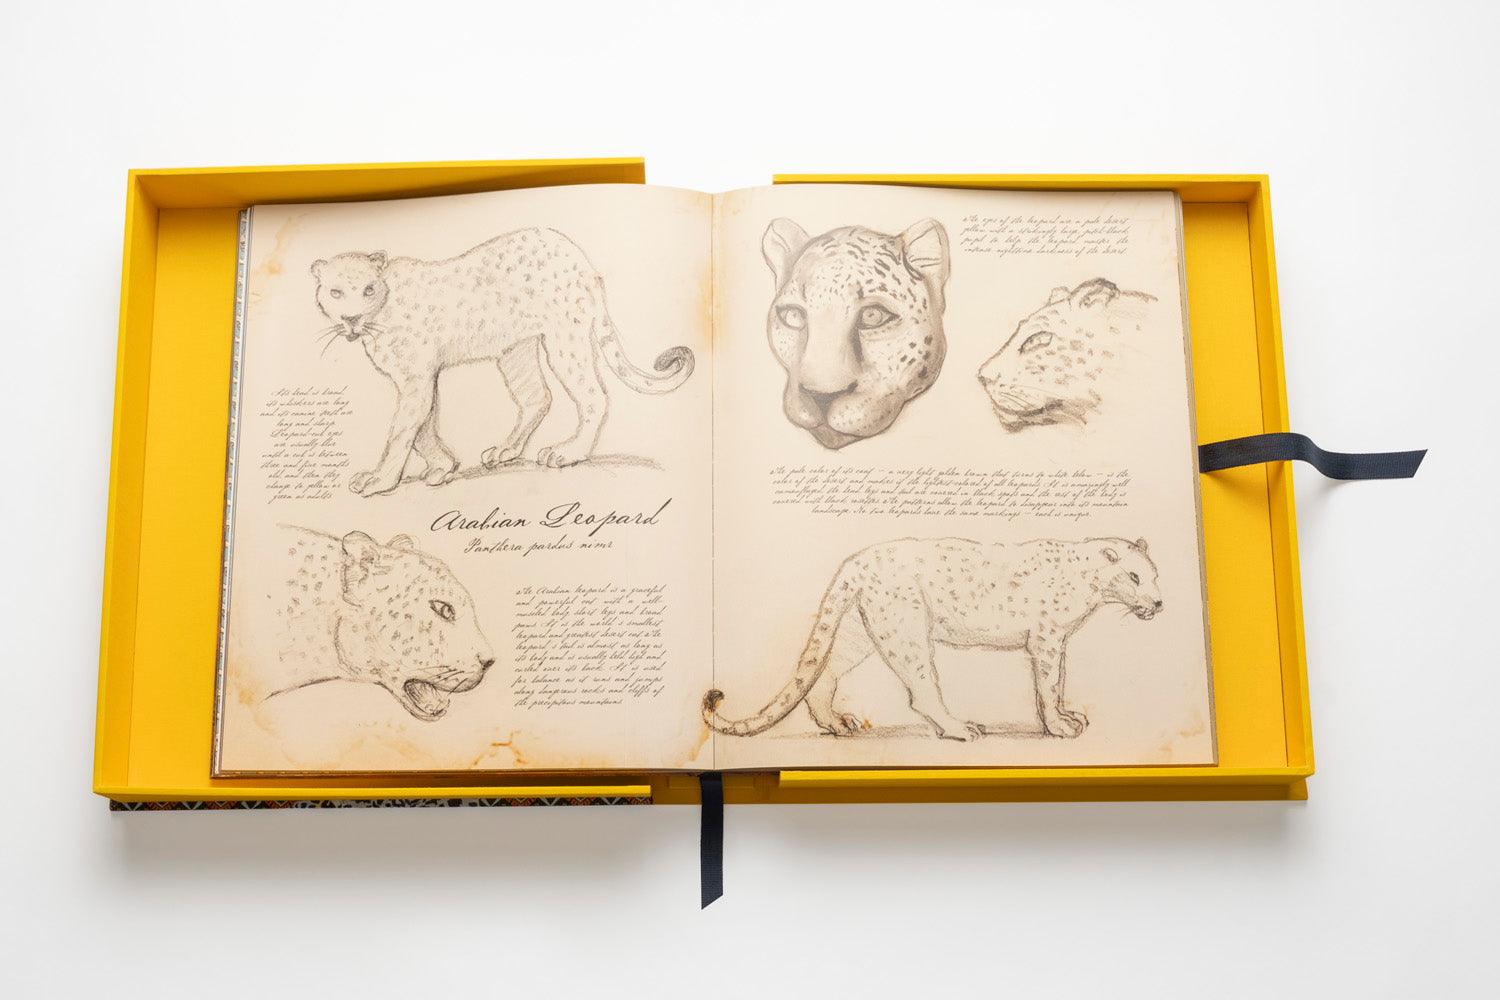 Its head is broad,
its whiskers are long
and its canine teeth are
long and sharp.
Leopard cub eyes
are usually blue
until a cub is between
three and five months
old and then they
change to yellow or
green as adults.
Arabian Leopard
Panthera pardus nimr
The Arabian leopard is a graceful
and powerful cat with a well-
muscled body, short legs and broad
paws. It is the world's smallest
leopard and greatest desert cat. The
leopard's tail is almost as long as
its body and is usually held high and
curled over its back. It is used
for balance as it runs and jumps
along dangerous rocks and cliffs of
the precipitous mountains.
The eyes of the leopard are a pale desert
yellow with a strikingly large, pitch-black
pupil to help the leopard master the
intense nighttime darkness of the desert.
The pale color of its coat — a very light golden brown that turns to white below — is the
color of the desert and makes it the lightest-colored of all leopards. It is amazingly well
camouflaged, the head, legs and tail are covered in black spots and the rest of the body is
covered with black rosettes. The patterns allow the leopard to disappear into its mountain
landscape. No two leopards have the same markings — each is unique.